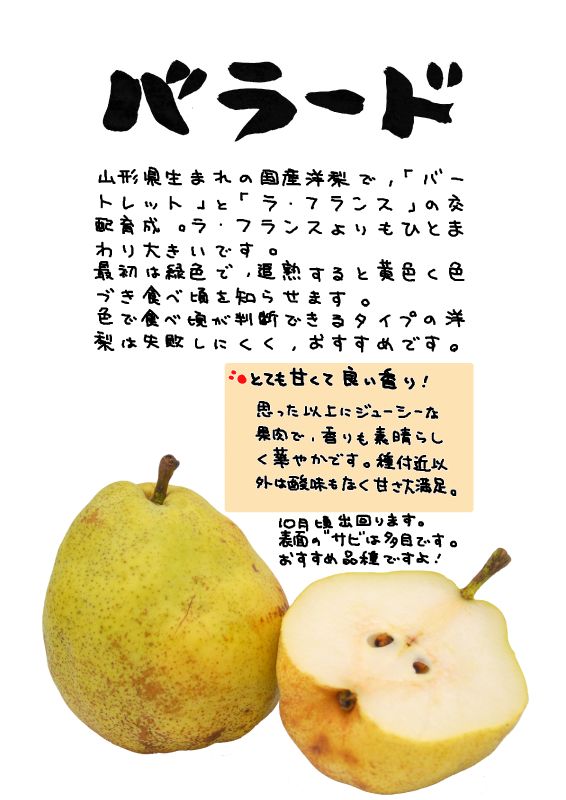 バラード
山形県生まれの国産洋梨で,「バー
トレット」と「ラ・フランス」の交
配育成。ラ・フランスよりもひとま
わり大きいです。
最初は緑色で,追熟すると黄色く色
づき食べ頃を知らせます。
色で食べ頃が判断できるタイプの洋
梨は失敗しにくく,おすすめです。
とても甘くて良い香り!
思った以上にジューシーな
果肉で,香りも素晴らし
く華やかです。種付近以
外は酸味もなく甘さ大満足。
10月頃出回ります。
表面の"サビ"は多目です。
おすすめ品種ですよ!